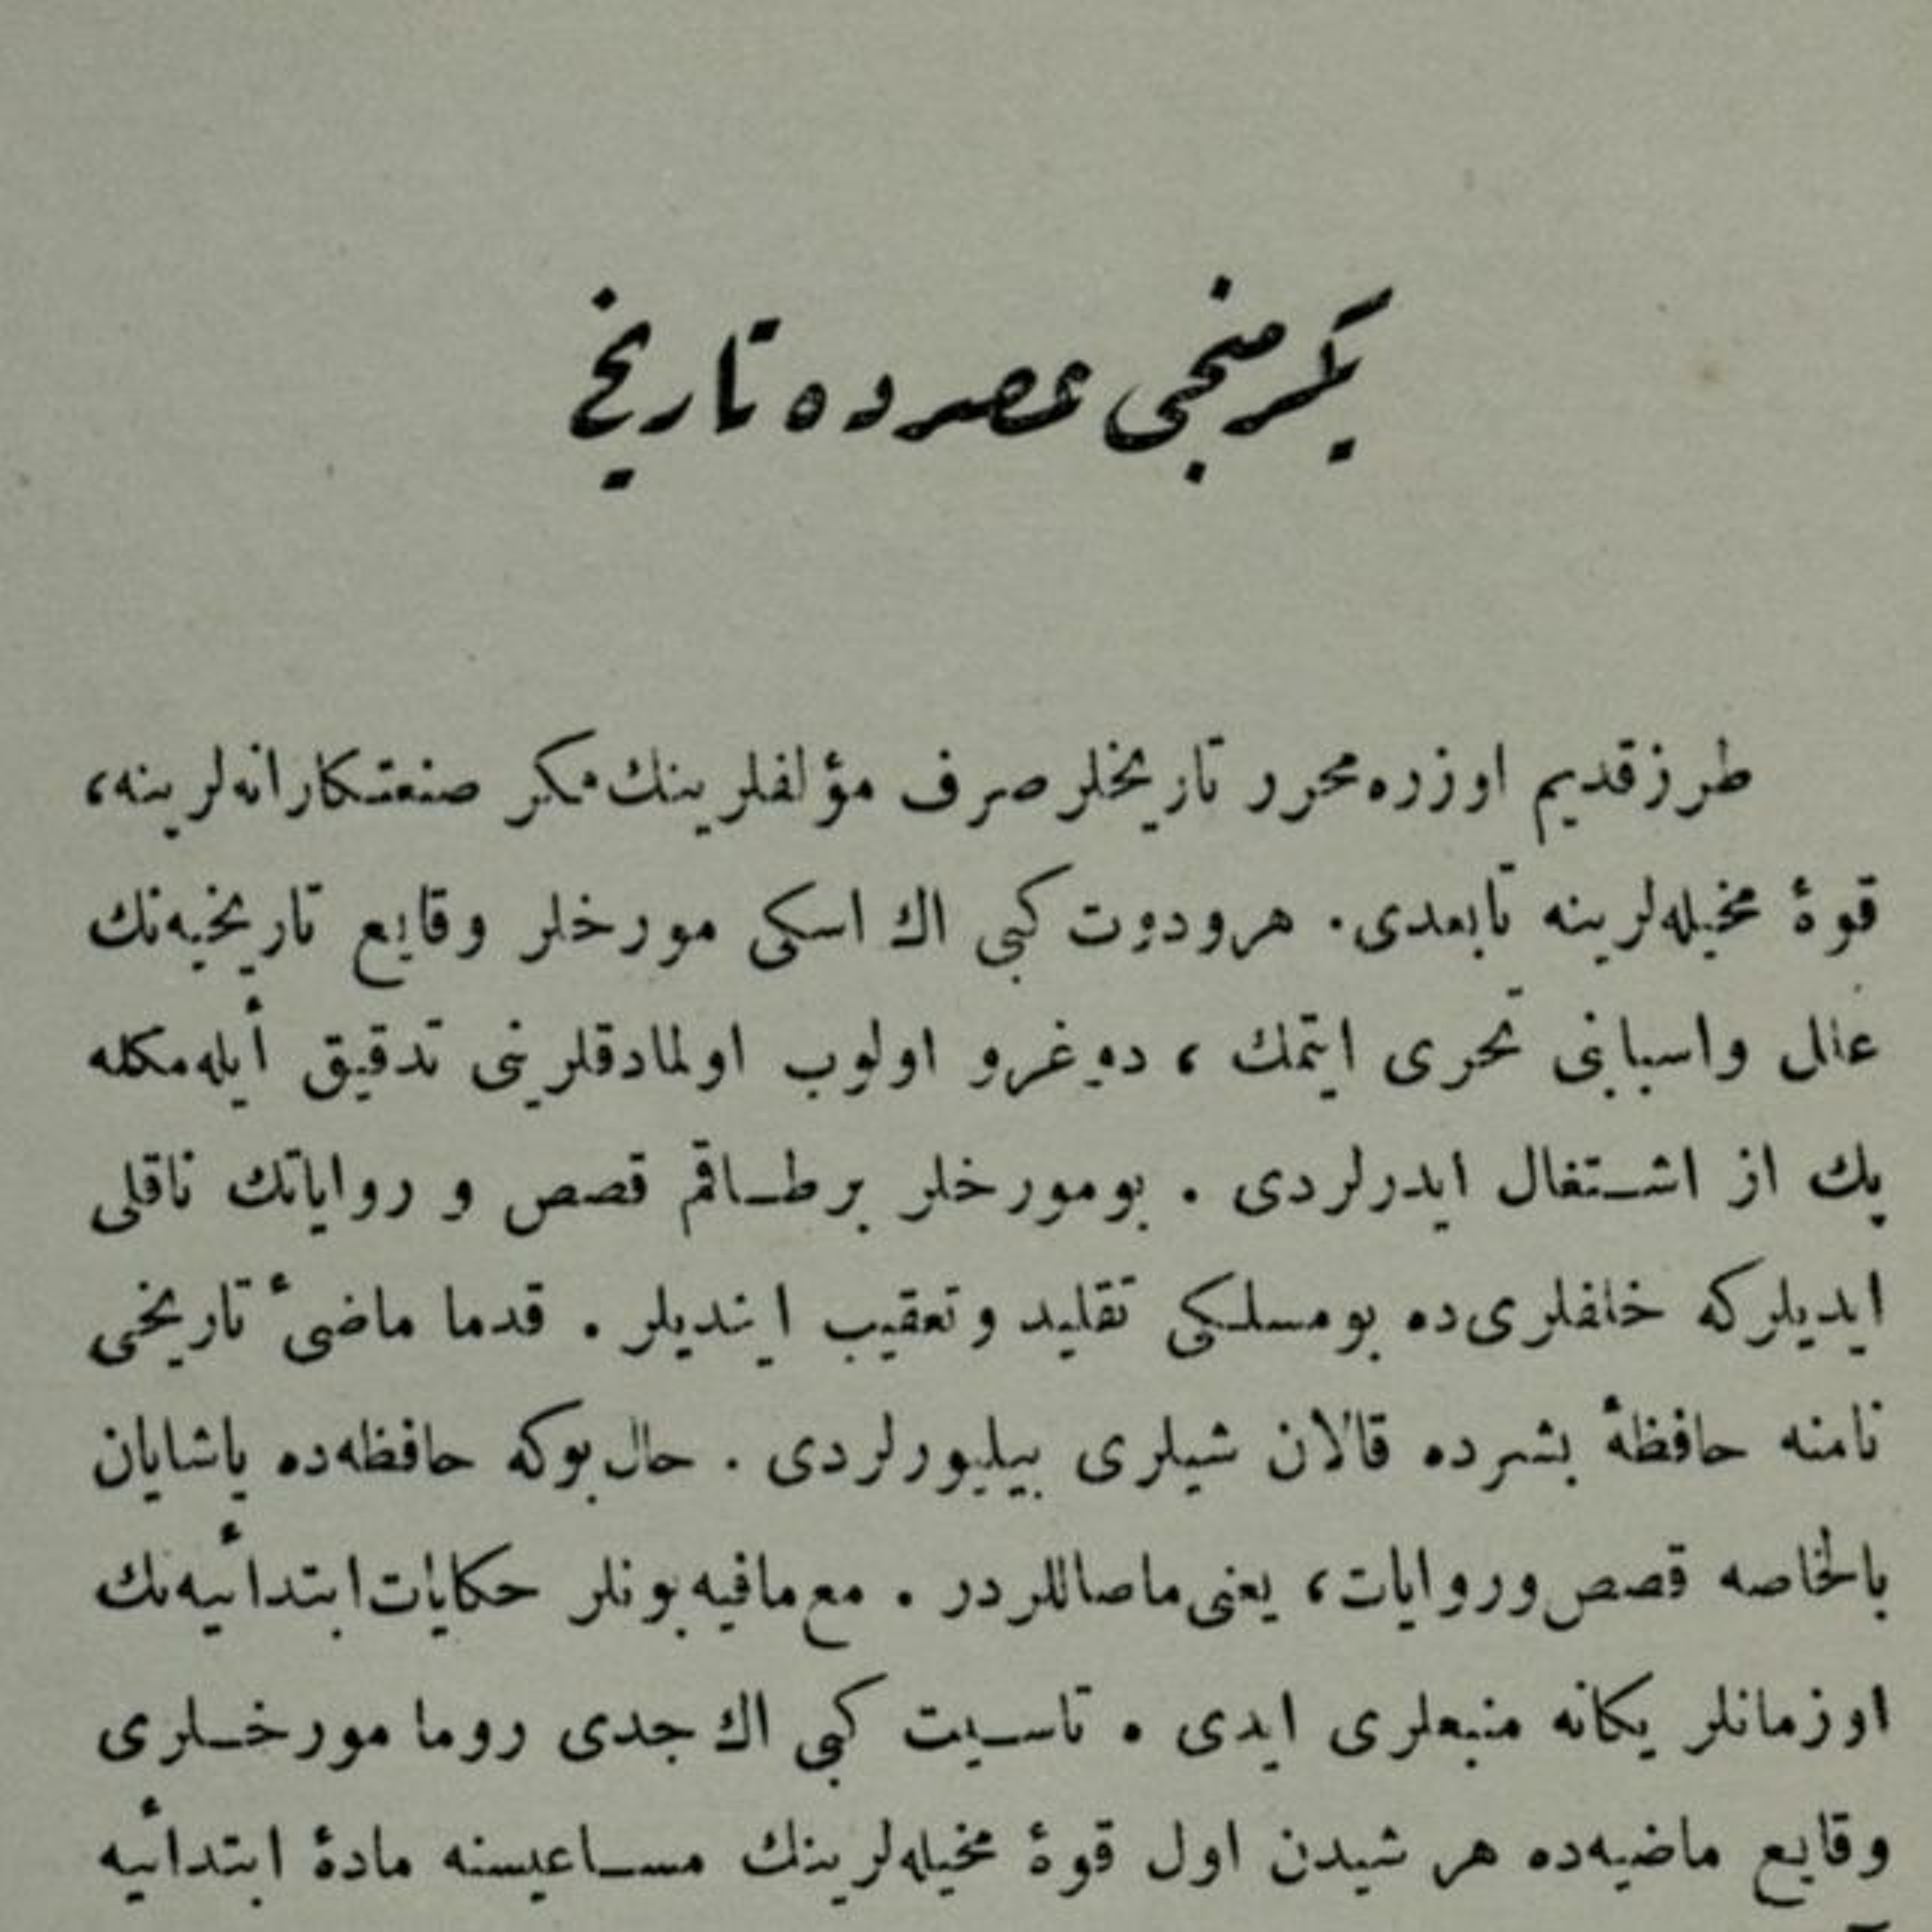 یکرمنجی عصرده تاریخ
طرز قدیم اوزره محرر تاریخلر صرف مؤلفلرینك فکر صنعتکارانه‌لرینه،
قوهٔ مخیله‌لرینه تابعدی. هرودوت کبی اك اسکی مورخلر وقایع تاریخیه‌نك
علل واسبابنی تحری ایتمك ، دوغرو اولوب اولمادقلرینی تدقیق أیله‌مکله
پك از اشتغال ایدرلردی . بومورخلر برطاقم قصص و روایاتك ناقلی
ایدیلرکه خلفلری‌ده بومسلکی تقلید و تعقیب ایتدیلر . قدما ماضئ تاریخی
نامنه حافظهٔ بشرده قالان شیلری بیلیورلردی . حال بوکه حافظه‌ده یاشایان
بالخاصه قصص وروایات، یعنی ماصاللردر . مع‌مافیه بونلر حکایات ابتدائیه‌نك
اوزمانلر یکانه منبعلری ایدی . تاسیت کبی اك جدی روما مورخلری
وقایع ماضیه‌ده هر شیدن اول قوهٔ مخیله‌لرینك مساعیسنه مادهٔ ابتدائیه